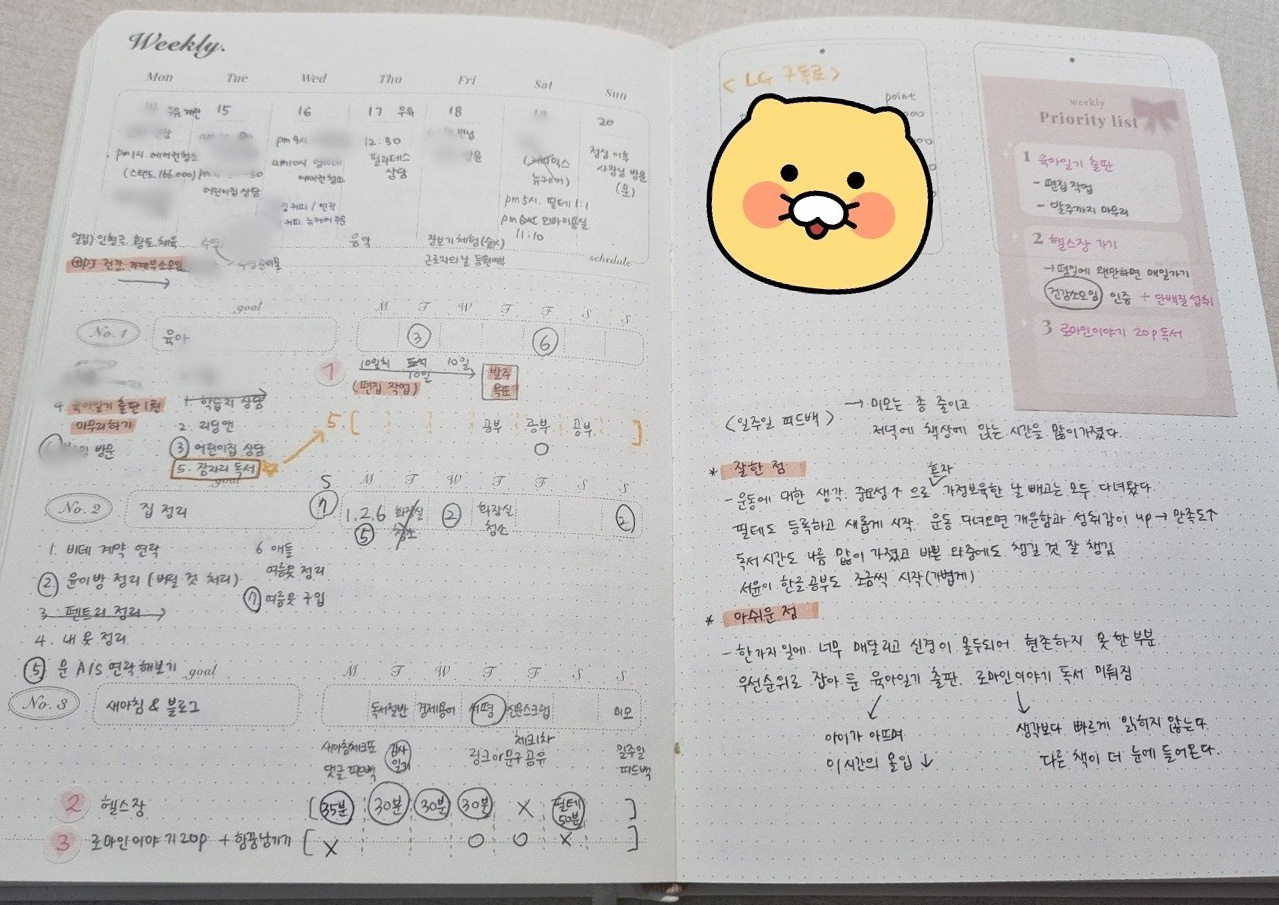 Weekly.
Mon Tue Wed Thu Fri Sat Sun
15 16 17 우유 18 20
pm 9시
12:30
필라테스
상담
pm 1시. 에어컨청소
(스탠드 166.000)
어린이집 상담
에어컨청소
점심 이후
사장님 방문
(문)
뉴케어)
pm 5시. 필테 1:1
11:10
음악
장보기 체험
근로자의 날 등원
schedule
goal
M T W T F S S
No. 1
육아
③ ⑥
1
10일치 10일
10일
(편집 작업)
발주
목표
4. 육아일기 출판 1권
마무리하기
방문
1. 학습지 상담
2. 리딩앤
③ 어린이집 상담
5. 잠자리 독서
5. [ 공부 공부 공부 ]
○
goal
S M T W T F S S
No. 2
집 정리
⑦ 1. 2. 6 화장실 청소 ② 화장실 청소 ②
⑤
1. 비데 계약 연락
② 윤이방 정리 (버릴 것 처리)
3. 펜트리 정리
4. 내 옷 정리
⑤ 문 A/S 연락해보기
6 애들
여름옷 정리
⑦ 여름옷 구입
goal
M T W T F S S
No. 3
새아침 & 블로그
독서절반 경제용어 서평 신문스크랩 미모
새아침체크표
댓글 피드백
감사
일기
체크1차
링크 or 문구 공유
일주일
피드백
2 헬스장 [ 35분 30분 30분 30분 X 필테 50분 ]
3 로마인이야기 20p + 흔적남기기 [ X ○ ○ X ]
< LG 구독료 >
point
weekly
Priority list
1 육아일기 출판
- 편집 작업
- 발주까지 마무리
2 헬스장 가기
→ 평일에 왠만하면 매일가기
건강소모임 인증 + 단백질 섭취
3 로마인이야기 20p 독서
<일주일 피드백> → 미모는 좀 줄이고
저녁에 책상에 앉는 시간을 많이 가졌다.
* 잘한 점
혼자
- 운동에 대한 생각. 중요성↑ 으로 가정보육한 날 빼고는 모두 다녀왔다.
필테도 등록하고 새롭게 시작. 운동 다녀오면 개운함과 성취감이 up → 만족도↑
독서시간도 나름 많이 가졌고 바쁜 와중에도 챙길 것 잘 챙김
서윤이 한글공부도 조금씩 시작 (가볍게)
* 아쉬운 점
- 한가지 일에 너무 매달리고 신경이 몰두되어 현존하지 못한 부분.
우선순위로 잡아 둔 육아일기 출판. 로마인이야기 독서 미뤄짐
아이가 아프며
이 시간의 몰입 ↓
생각보다 빠르게 읽히지 않는다.
다른 책이 더 눈에 들어온다.